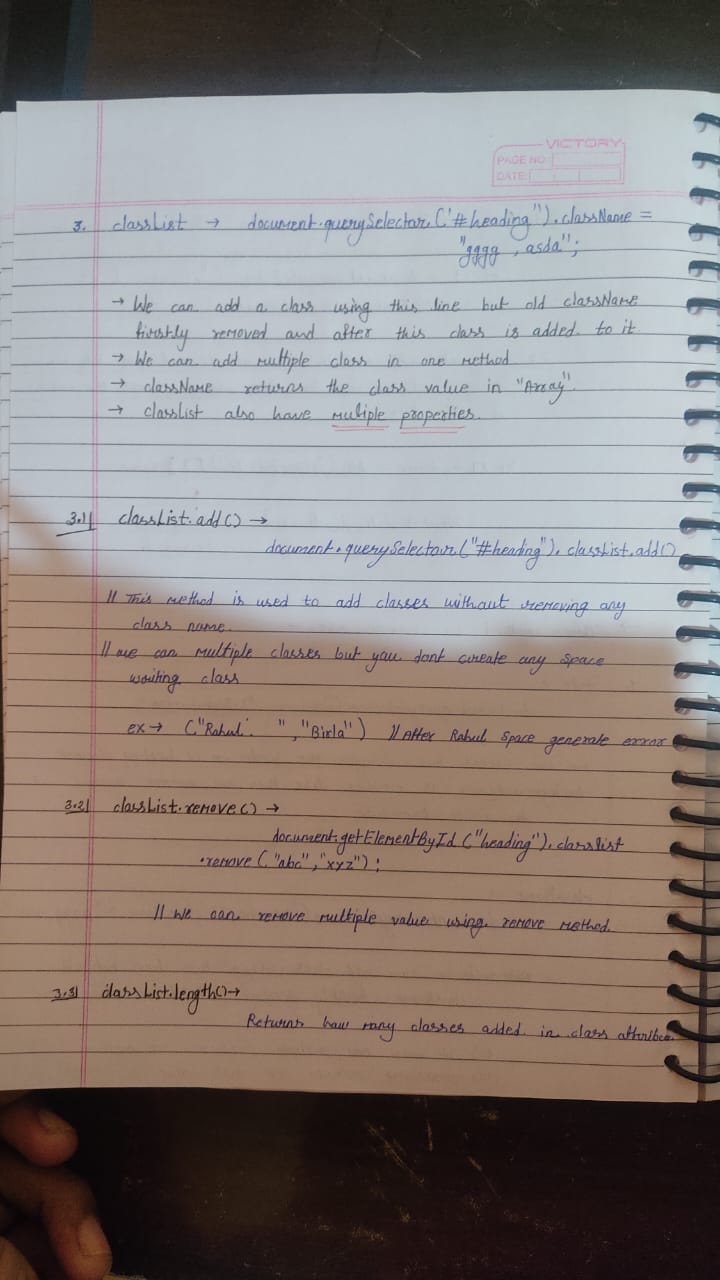 VICTORY
PAGE NO.
DATE:
3. classList → document.querySelector('#heading").className =
"gggg , asda";
→ We can add a class using this line but old className
firstly removed and after this class is added. to it
→ We can add multiple class in one method
→ className returns the class value in "Array".
→ classList also have muliple properties.
3.1| classList.add() →
document.querySelector("#heading"). classList.add()
// This method is used to add classes without removing any
class name.
// we can multiple classes but you dont create any space
class
ex → ("Rahul. ","Birla") // After Rahul space generate error
3.2| classList.remove() →
document.getElementById ("heading"). classlist
.remove ("abc","xyz");
// We can remove multiple value using. remove method.
3.3| classList.length()→
Returns how many classes added. in class